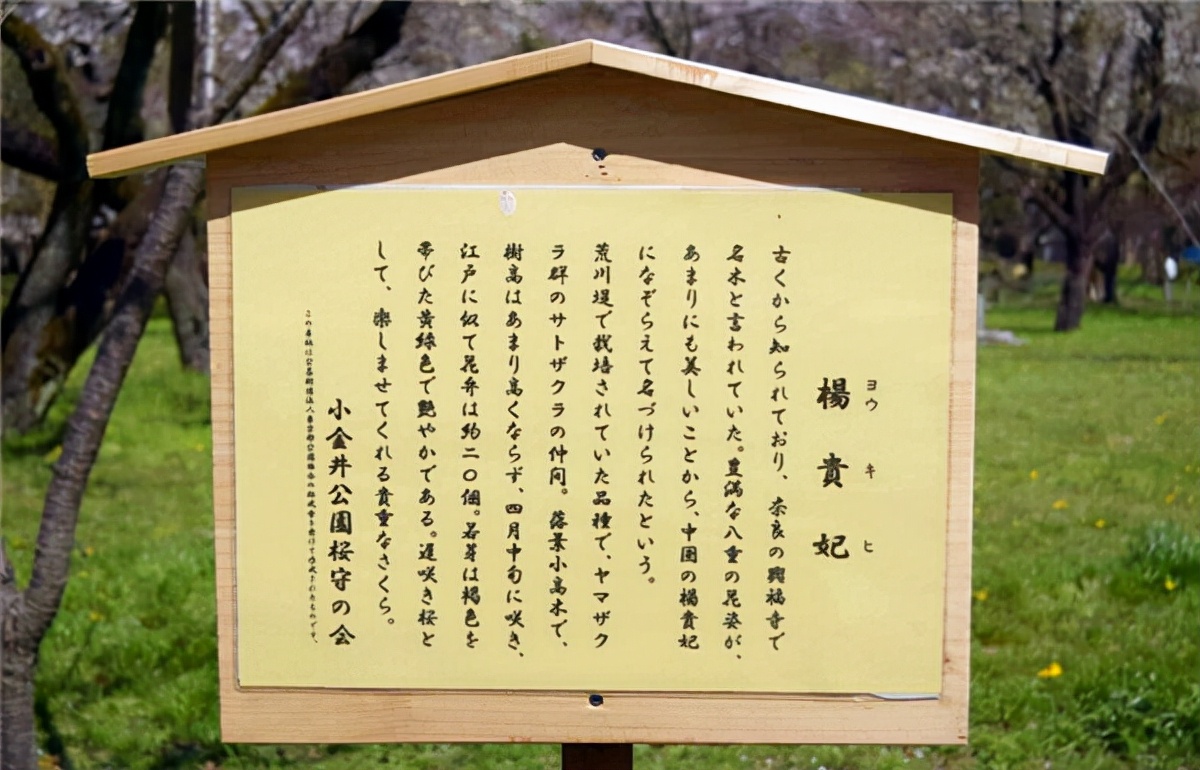 ヨウ キ ヒ
楊貴妃
古くから知られており、奈良の興福寺で
名木と言われていた。豊満な八重の花姿が、
あまりにも美しいことから、中国の楊貴妃
になぞらえて名づけられたという。
荒川堤で栽培されていた品種で、ヤマザク
ラ群のサトザクラの仲間。落葉小高木で、
樹高はあまり高くならず、四月中旬に咲き、
江戸に似て花弁は約二〇個。若芽は褐色を
帯びた黄緑色で艶やかである。遅咲き桜と
して、楽しませてくれる貴重なさくら。
小金井公園桜守の会
この看板は公益財団法人東京都公園協会の を受けて作成されたものです。